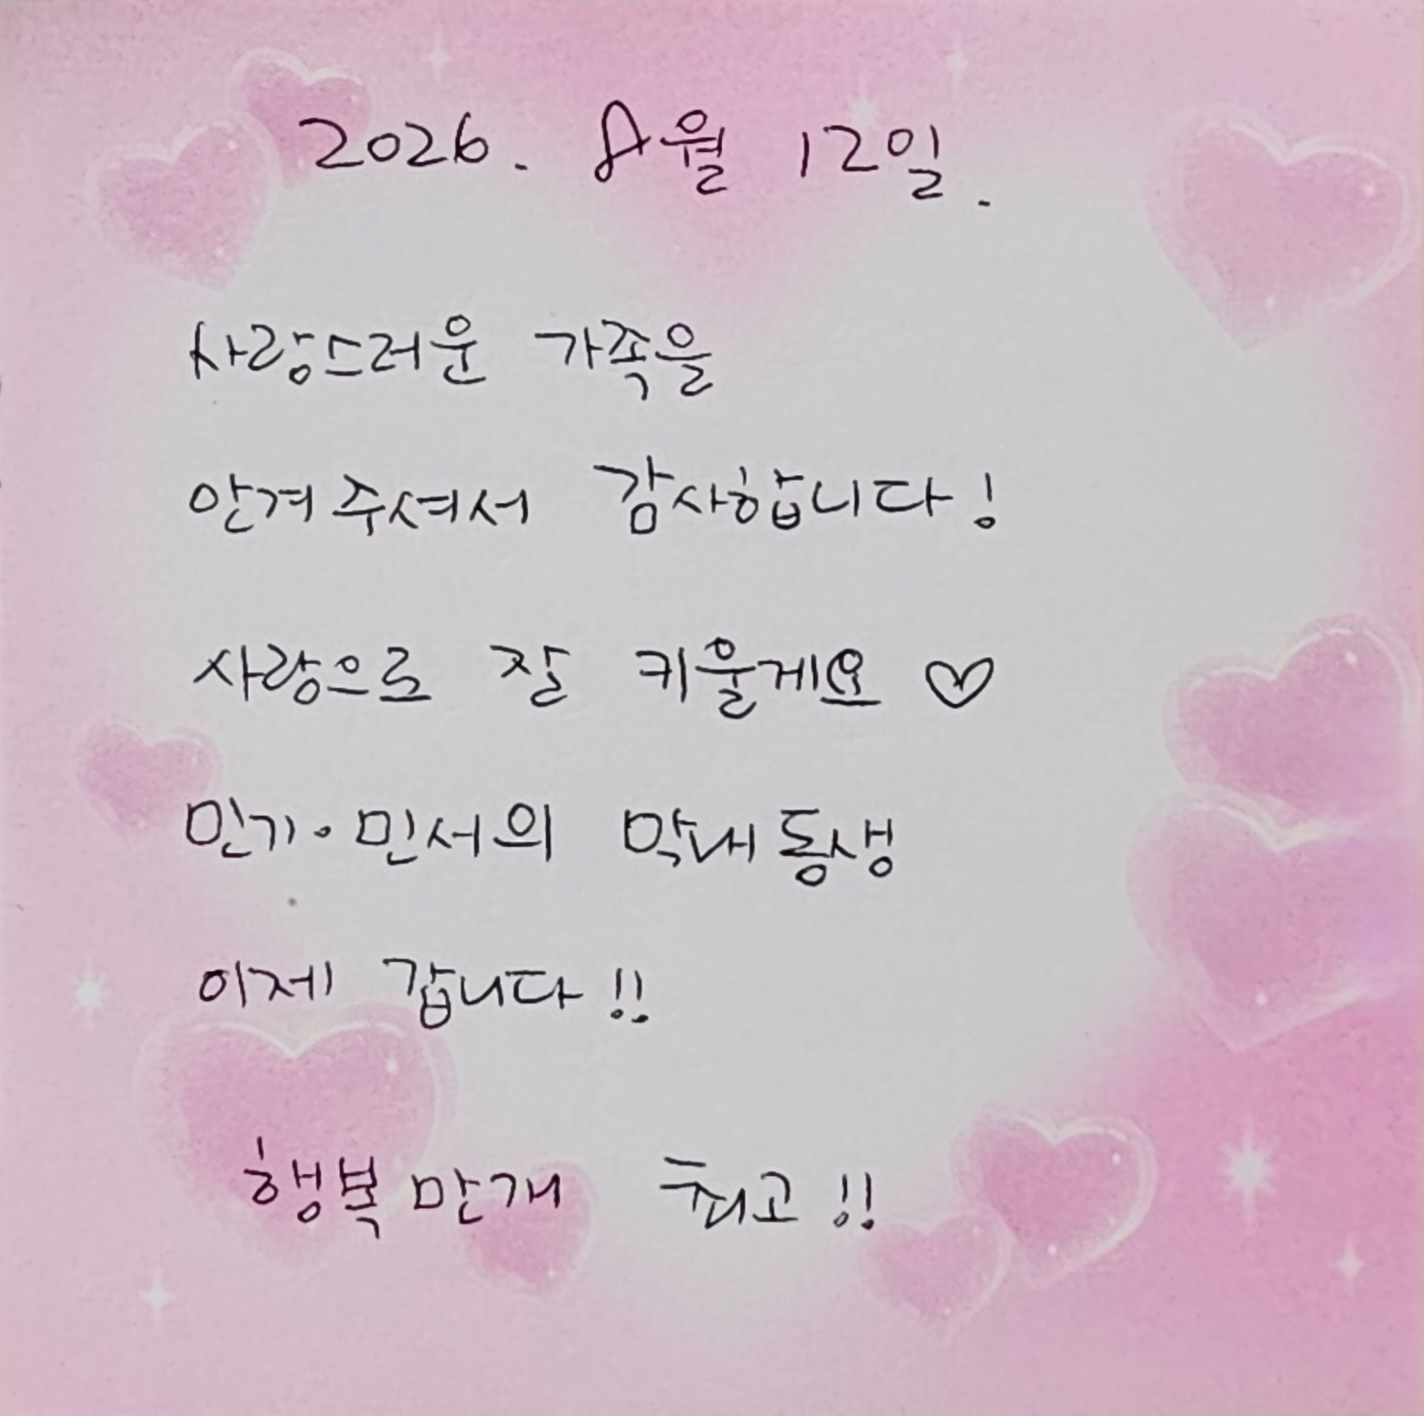 2026. 8월 12일.
사랑스러운 가족을
안겨주셔서 감사합니다!
사랑으로 잘 키울게요 ♡
민기·민서의 막내동생
이제 갑니다!!
행복만개 최고!!